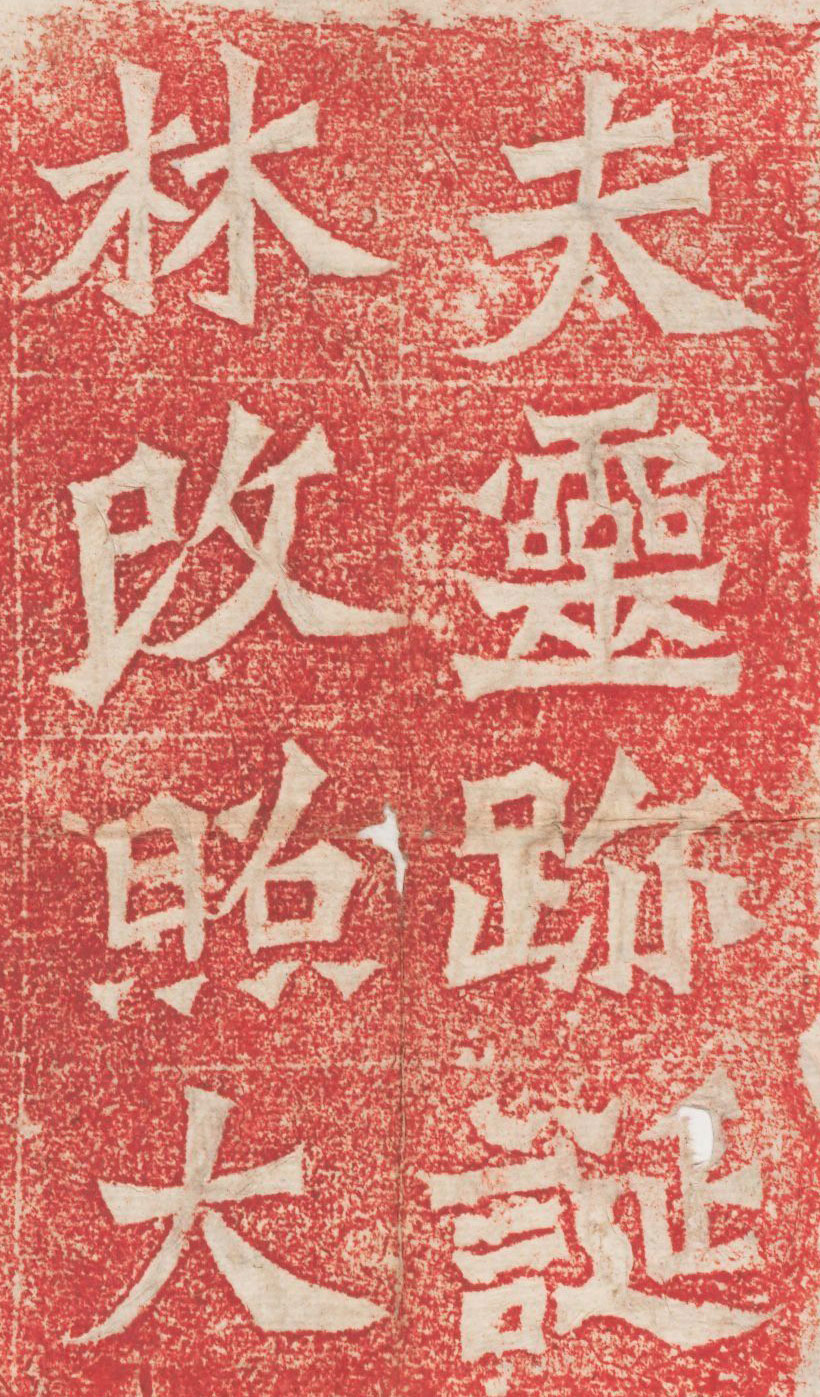 夫靈跡誕
林改照大